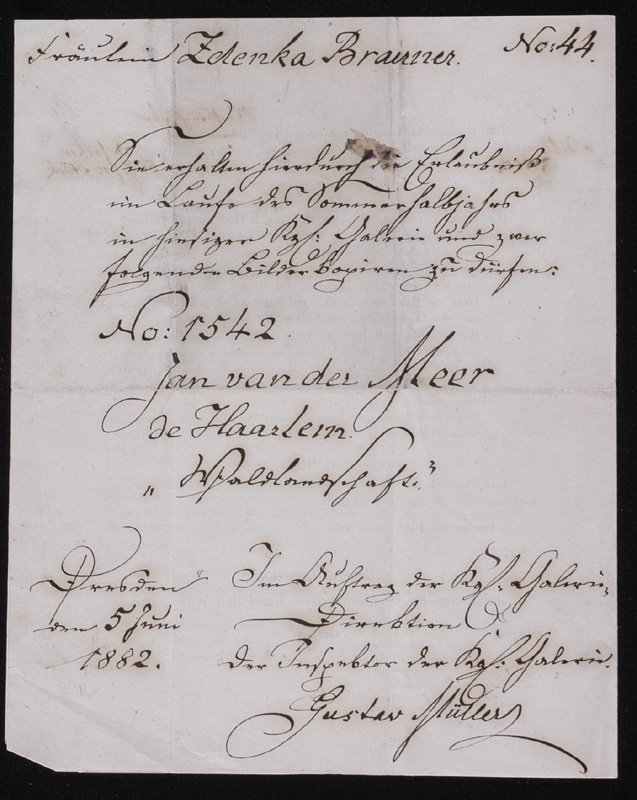 Fräulein Zdenka Brauner. No: 44.
Sie erhalten hierdurch die Erlaubniß
im Laufe des Sommerhalbjahrs
in hiesiger Kgl: Galerie und zwar
folgende Bilder kopiren zu dürfen:
No: 1542.
Jan van der Meer
de Haarlem.
„Waldlandschaft."
Dresden
den 5 Juni
1882.
Im Auftrag der Kgl: Galerie-
Direktion
der Inspektor der Kgl: Galerie.
Gustav Müller